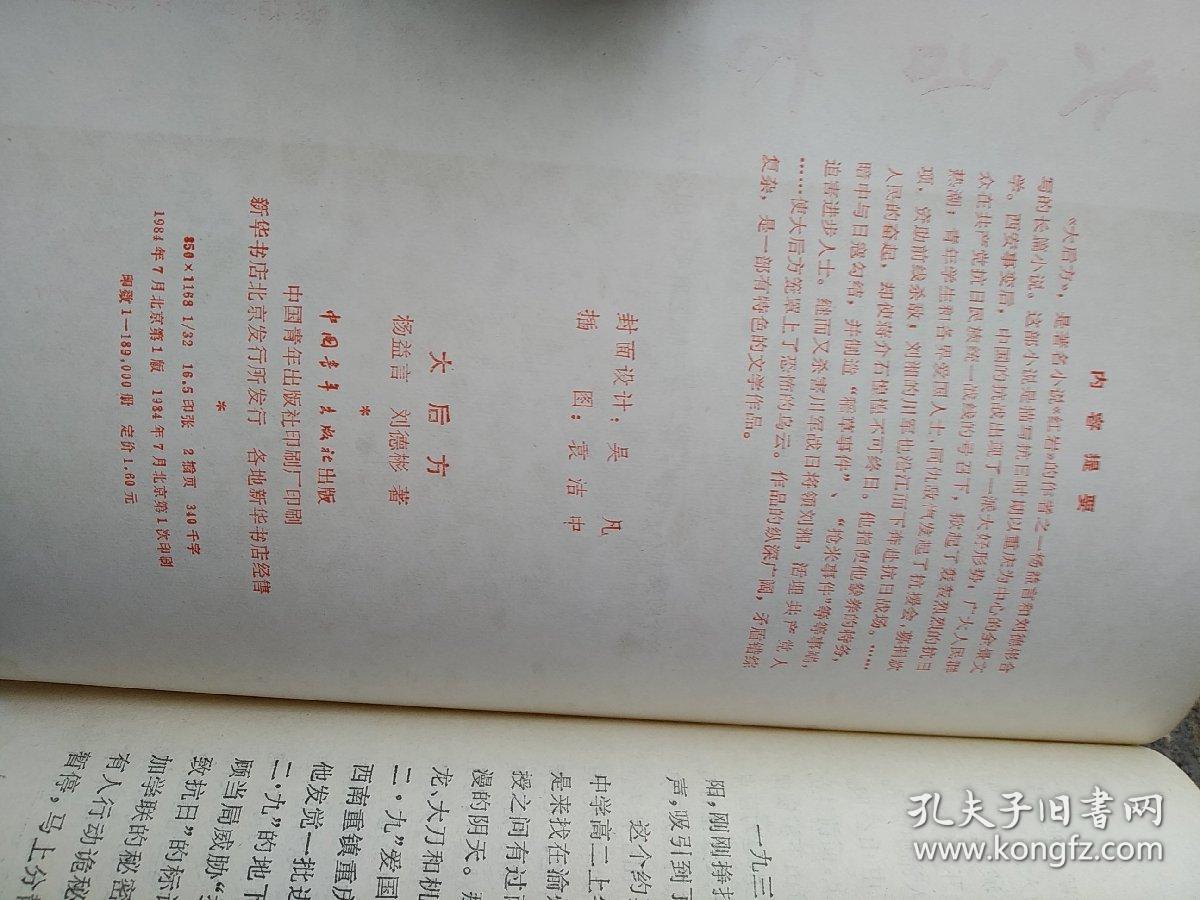 内容提要
《大后方》，是著名小说《红岩》的作者之一杨益言和刘德彬合
写的长篇小说。这部小说是描写抗日时期以重庆为中心的余娥文
学。西安事变后，中国的抗战出现了一派大好形势，广大人民群
众在共产党抗日民族统一战线的号召下，掀起了轰轰烈烈的抗日
热潮，青年学生和各界爱国人士，同仇敌忾发起了抗援会，募捐款
项，资助前线杀敌，刘湘的川军也沿江而下奔赴抗日战场。……
人民的奋起，却使蒋介石惶惶不可终日。他指使他豢养的特务，
暗中与日寇勾结，并制造“猎草事件”、“抢米事件”等等事端，
迫害进步人士。继而又杀害川军战日将领刘湘，活迎共产党人
……使大后方笼罩上了恐怖的乌云。作品的纵深广阔，矛盾错综
复杂，是一部有特色的文学作品。
封面设计：吴凡
插图：袁洁中
大后方
杨益言 刘德彬 著
*
中国青年出版社出版
中国青年出版社印刷厂印刷
新华书店北京发行所发行 各地新华书店经售
*
850×1168 1/32 16.5印张 2插页 340千字
1984年7月北京第1版 1984年7月北京第1次印刷
印数1—189,000册 定价1.60元
一九三
阳，刚刚挣扎
声，吸引到了
这个约
中学高二上
是来找在渝
授之间有过
漫的阴天。
龙、大刀和机
二·九”爱国
西南重镇重庆
他发觉一批进
二·九”的地下
顾当局威胁“
致抗日”的标
加学联的秘密
有人行动诡秘
暂停，马上分
孔夫子旧书网
www.kongfz.com